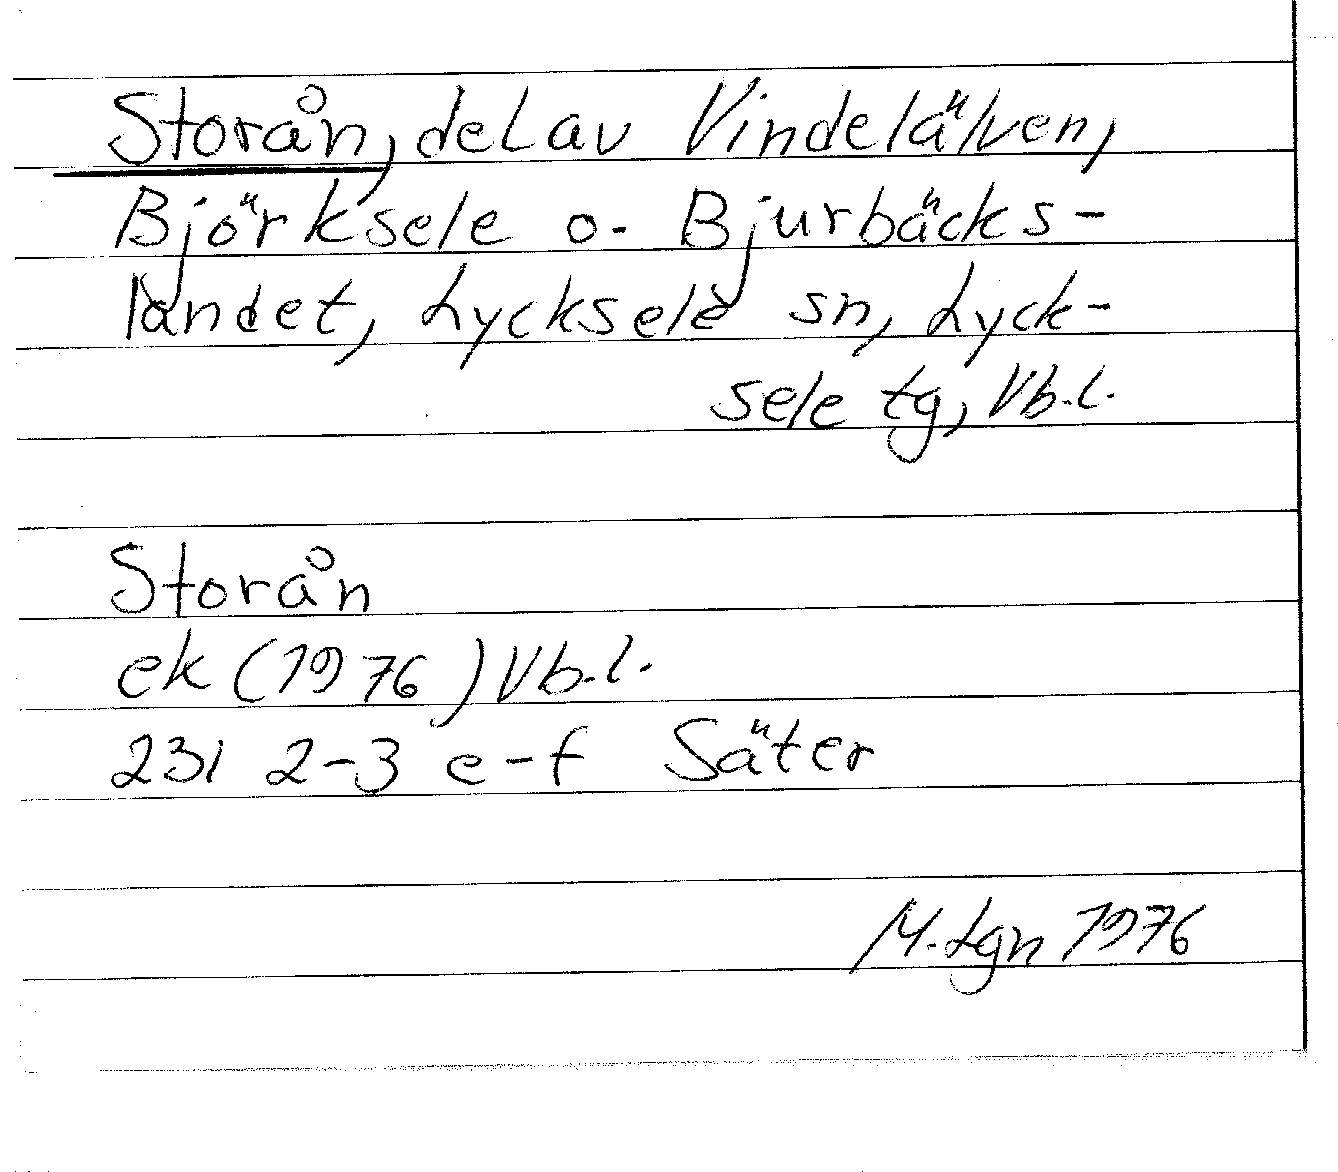 Storån, del av Vindelälven,
Björksele o. Bjurbäcks-
landet, Lycksele sn, Lyck-
sele tg, Vb.l.
Storån
ek (1976) Vb.l.
23i 2-3 e-f Säter
M. Lgn 1976